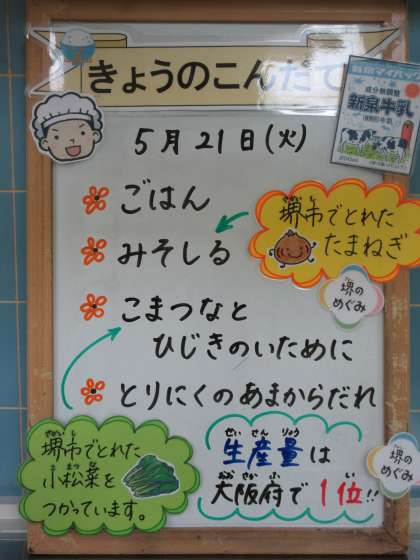 きょうのこんだて
成分無調整
新泉牛乳
5月21日(火)
ごはん
みそしる
堺市でとれた
たまねぎ
堺の
めぐみ
こまつなと
ひじきのいために
とりにくのあまからだれ
堺市でとれた
小松菜を
つかっています。
生産量は
大阪府で1位!!
堺の
めぐみ